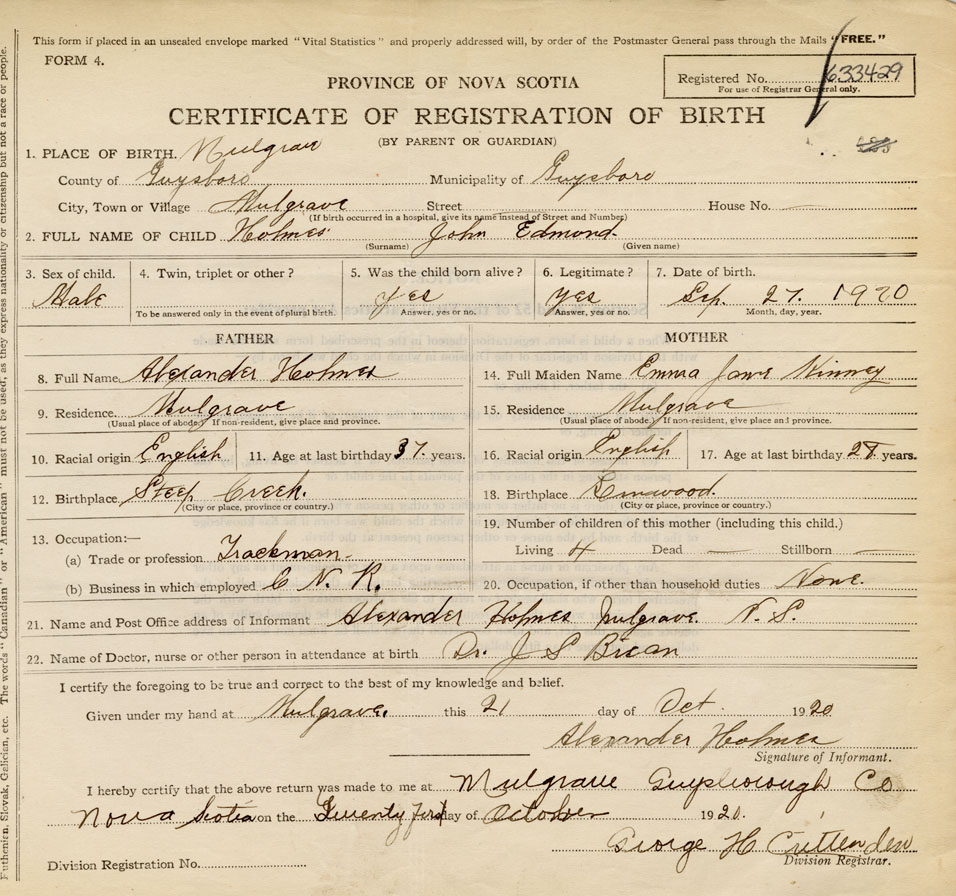 This form if placed in an unsealed envelope marked "Vital Statistics" and properly addressed will, by order of the Postmaster General pass through the Mails "FREE."
FORM 4.
Registered No. 633429
For use of Registrar General only.
PROVINCE OF NOVA SCOTIA
CERTIFICATE OF REGISTRATION OF BIRTH
(BY PARENT OR GUARDIAN)
1. PLACE OF BIRTH. Mulgrave
County of Guysboro Municipality of Guysboro
City, Town or Village Mulgrave Street House No. —
(If birth occurred in a hospital, give its name instead of Street and Number)
2. FULL NAME OF CHILD Holmes John Edmond.
(Surname) (Given name)
3. Sex of child. 4. Twin, triplet or other? 5. Was the child born alive? 6. Legitimate? 7. Date of birth.
Male Yes Yes Sep. 27. 1920
To be answered only in the event of plural birth. Answer, yes or no. Answer, yes or no. Month, day, year.
FATHER MOTHER
8. Full Name Alexander Holmes 14. Full Maiden Name Emma Jane Kinney
9. Residence Mulgrave 15. Residence Mulgrave
(Usual place of abode) If non-resident, give place and province. (Usual place of abode) If non-resident, give place and province.
10. Racial origin English 11. Age at last birthday 37. years. 16. Racial origin English 17. Age at last birthday years.
12. Birthplace Steep Creek. 18. Birthplace
(City or place, province or country.) (City or place, province or country.)
19. Number of children of this mother (including this child.)
13. Occupation:—
(a) Trade or profession Trackman. Living 4 Dead — Stillborn —
(b) Business in which employed C. N. R. 20. Occupation, if other than household duties None.
21. Name and Post Office address of Informant Alexander Holmes Mulgrave. N. S.
22. Name of Doctor, nurse or other person in attendance at birth Dr. J S
I certify the foregoing to be true and correct to the best of my knowledge and belief.
Given under my hand at Mulgrave. this 21 day of Oct. 1920
Alexander Holmes
Signature of Informant.
I hereby certify that the above return was made to me at Mulgrave Guysborough Co
Nova Scotia on the Twenty first day of October 1920.
George H Cruttenden
Division Registrar.
Division Registration No.
Ruthenian, Slovak, Galician, etc. The words "Canadian" or "American" must not be used, as they express nationality or citizenship but not a race or people.